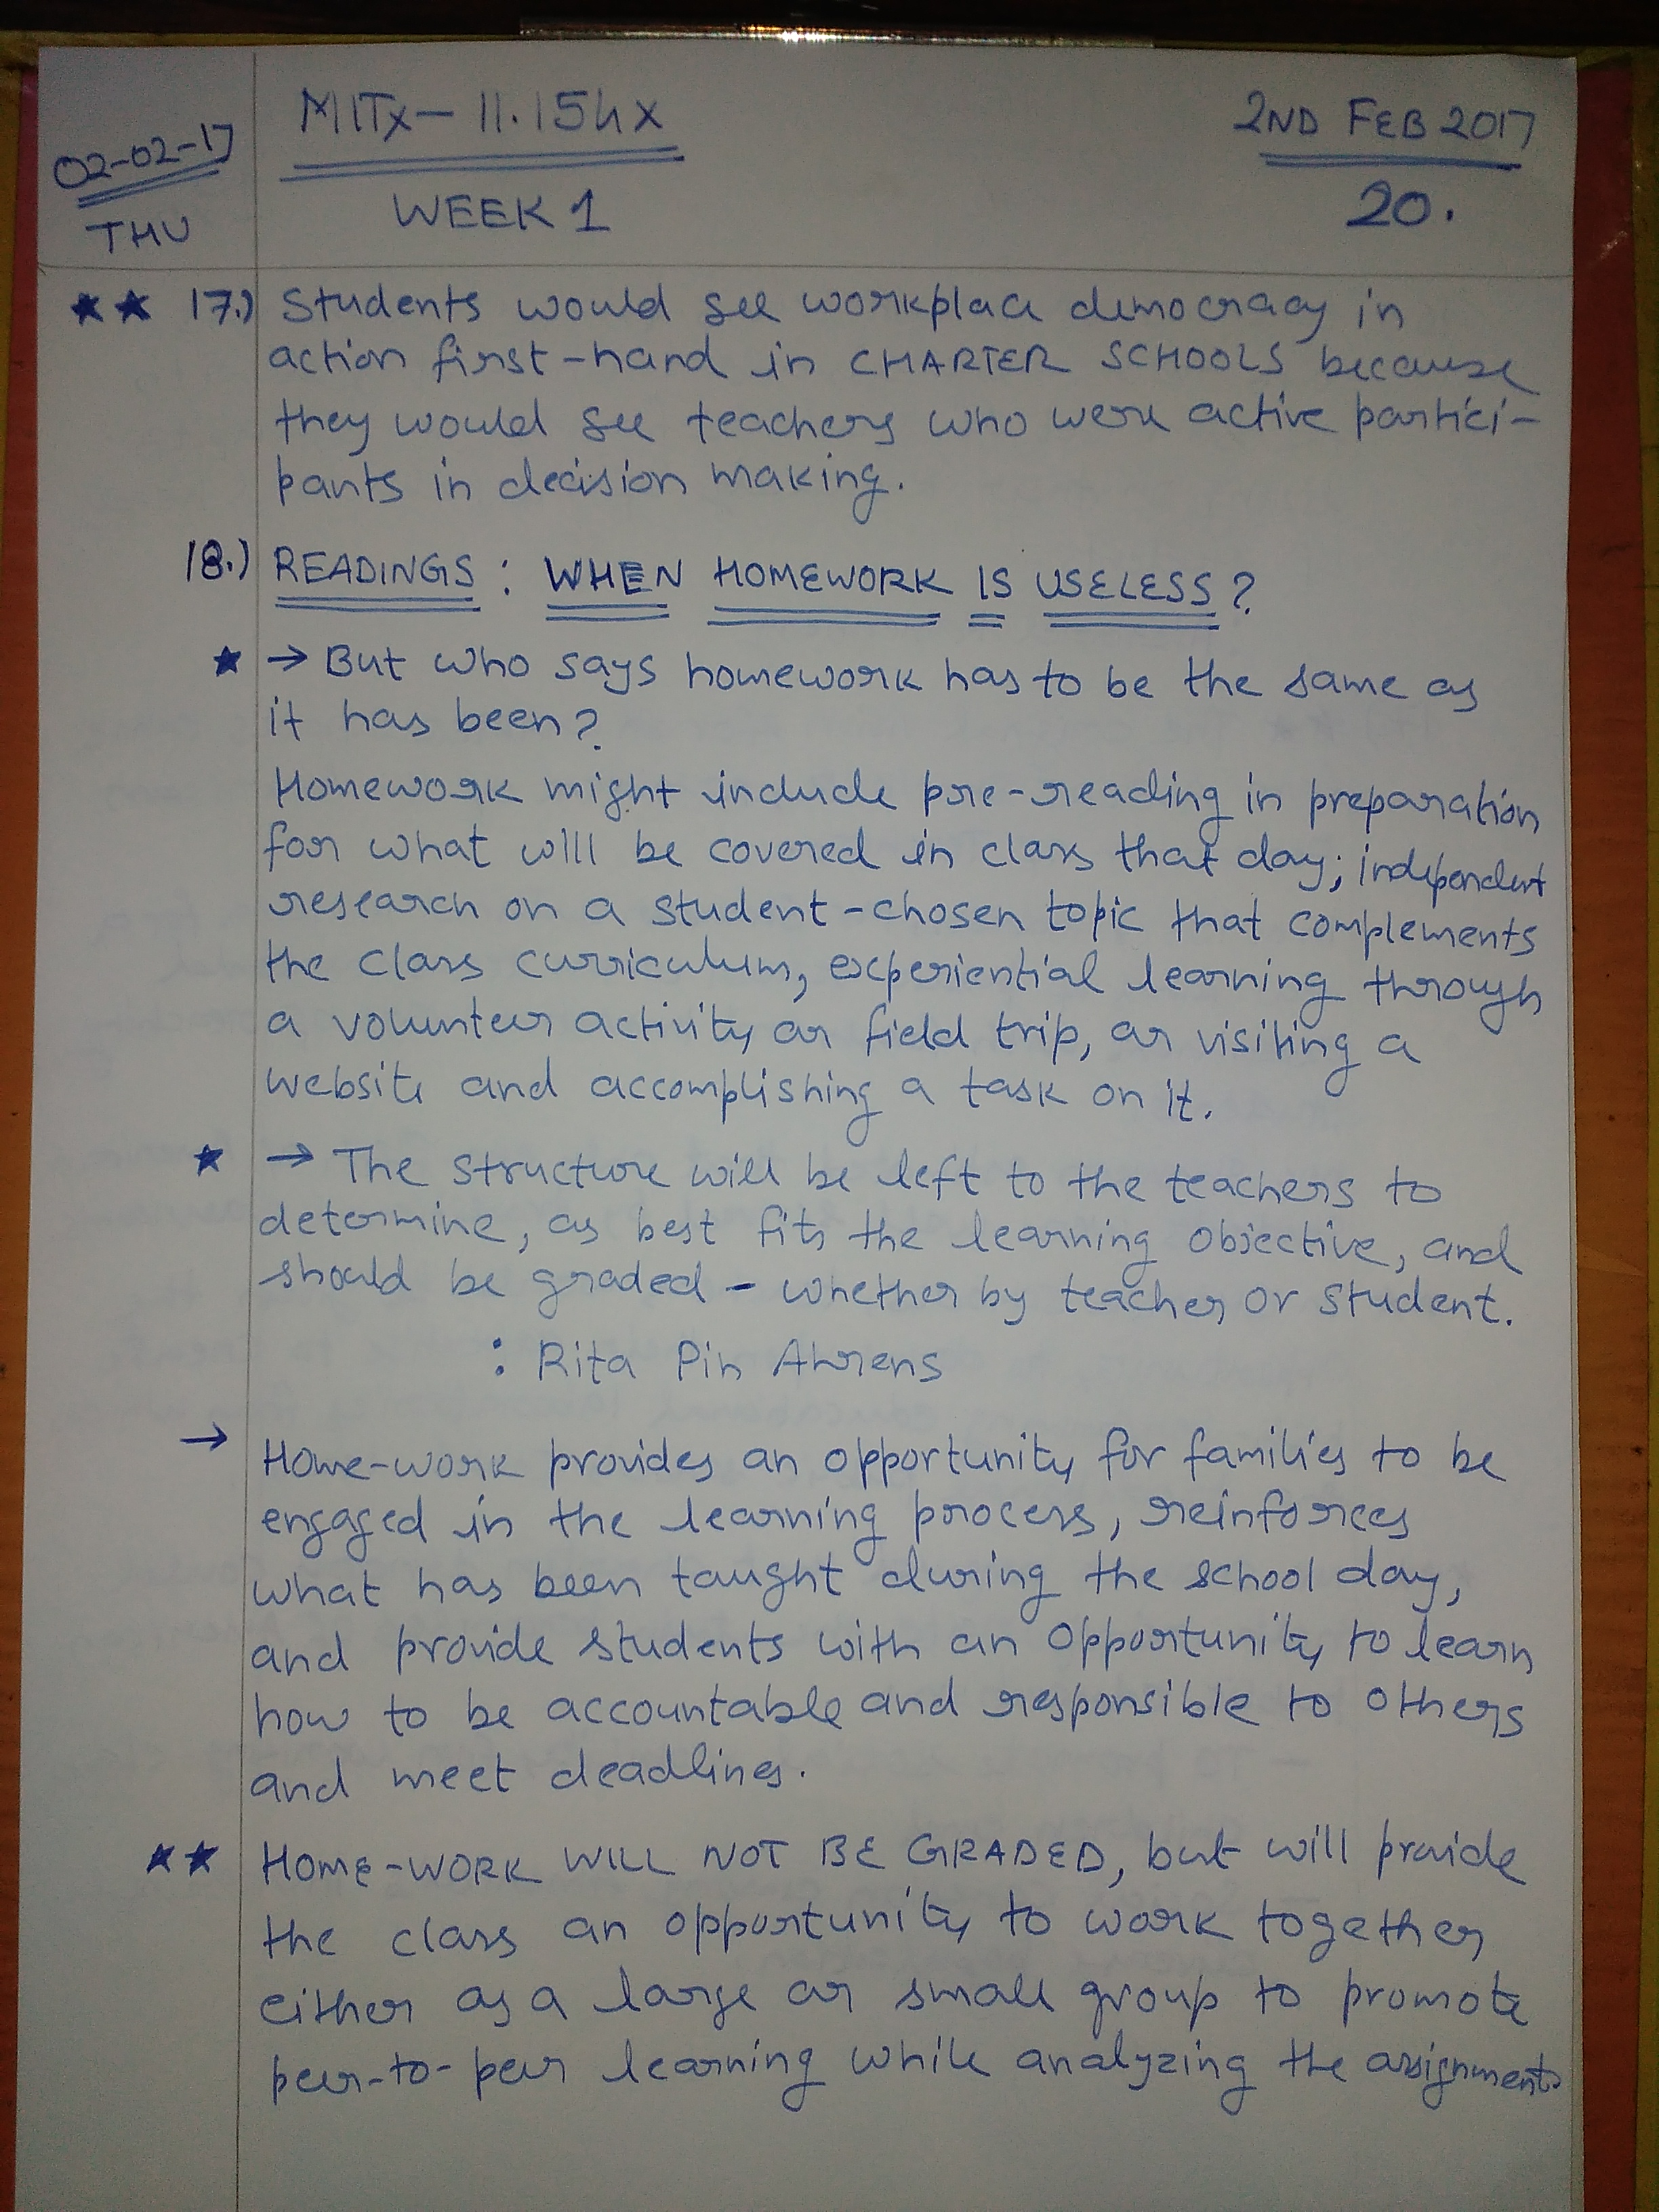 02-02-17
THU
MITx- 11.154x
WEEK 1
2ND FEB 2017
20.
★★ 17.) Students would see workplace democracy in
action first-hand in CHARTER SCHOOLS because
they would see teachers who were active partici-
pants in decision making.
18.) READINGS : WHEN HOMEWORK IS USELESS?
★ → But who says homework has to be the same as
it has been?
Homework might include pre-reading in preparation
for what will be covered in class that day; independent
research on a student-chosen topic that complements
the class curriculum, experiential learning through
a volunteer activity or field trip, or visiting a
website and accomplishing a task on it.
★ → The structure will be left to the teachers to
determine, as best fits the learning objective, and
should be graded - whether by teacher or student.
: Rita Pin Ahrens
→ Home-work provides an opportunity for families to be
engaged in the learning process, reinforces
what has been taught during the school day,
and provide students with an opportunity to learn
how to be accountable and responsible to others
and meet deadlines.
★★ HOME-WORK WILL NOT BE GRADED, but will provide
the class an opportunity to work together
either as a large or small group to promote
peer-to-peer learning while analyzing the assignment.